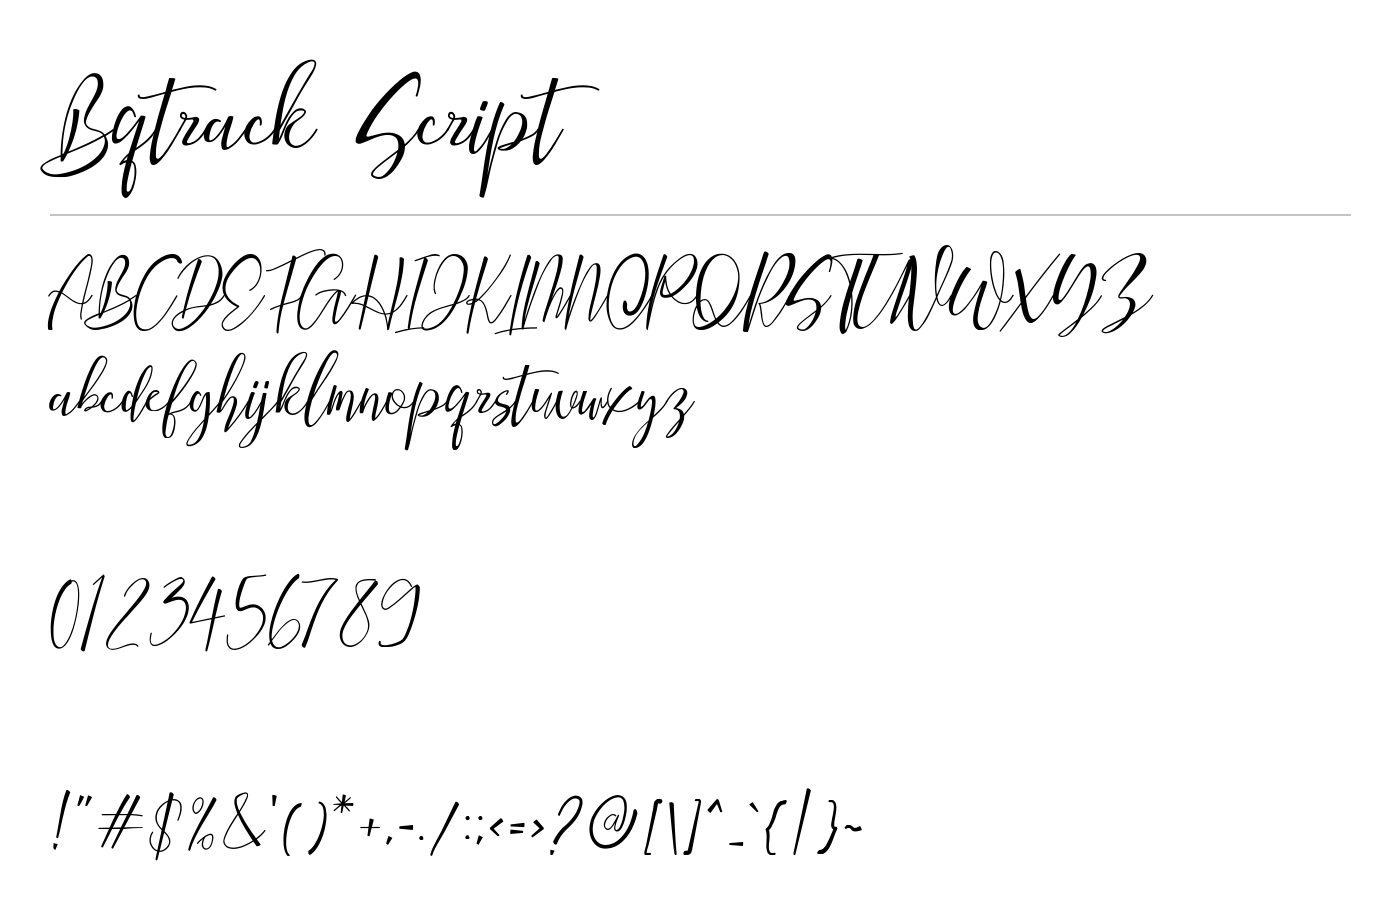 Bqtrack Script
ABCDEFGHIJKLMNOPQRSTUVWXYZ
abcdefghijklmnopqrstuvwxyz
0123456789
!"#$%&'()*+,-./:;<=>?@[\]^_`{|}~